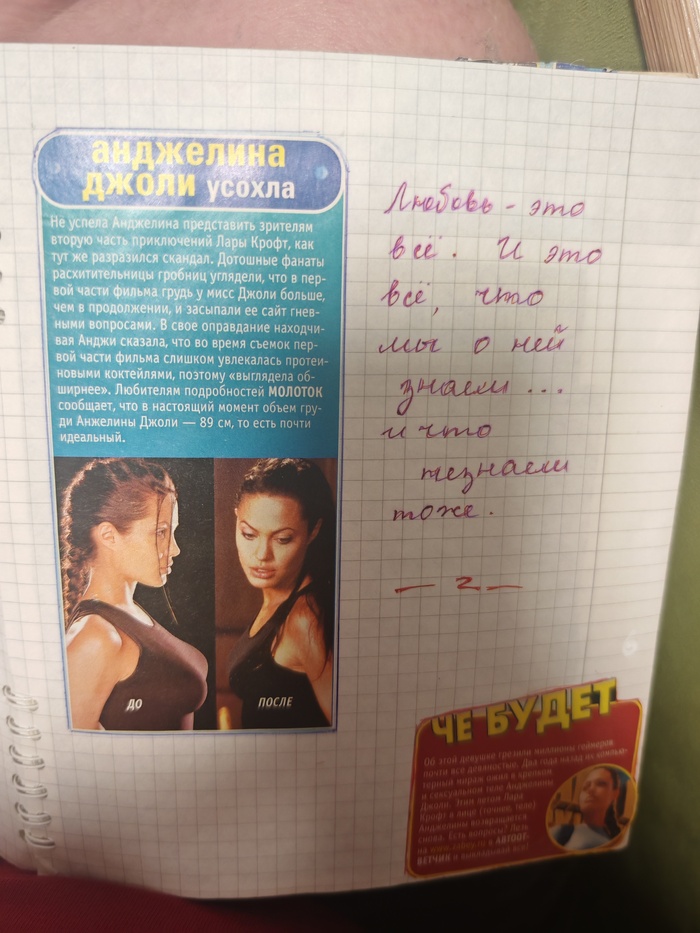 анджелина
джоли усохла
Не успела Анджелина представить зрителям
вторую часть приключений Лары Крофт, как
тут же разразился скандал. Дотошные фанаты
расхитительницы гробниц углядели, что в пер-
вой части фильма грудь у мисс Джоли больше,
чем в продолжении, и засыпали ее сайт гнев-
ными вопросами. В свое оправдание находчи-
вая Анджи сказала, что во время съемок пер-
вой части фильма слишком увлекалась протеи-
новыми коктейлями, поэтому «выглядела об-
ширнее». Любителям подробностей МОЛОТОК
сообщает, что в настоящий момент объем гру-
ди Анжелины Джоли — 89 см, то есть почти
идеальный.
ДО
ПОСЛЕ
Любовь - это
всё. И это
всё, что
мы о ней
знаем ...
и что
незнаем
тоже.
— 2 —
ЧЕ БУДЕТ
Об этой девушке грезили миллионы геймеров
почти все девяностые. Два года назад их компью-
терный мираж ожил в крепком
и сексуальном теле Анджелины
Джоли. Этим летом Лара
Крофт в лице (точнее, теле)
Анджелины возвращается
снова. Есть вопросы? Лезь
на в АВТООТ-
ВЕТЧИК и все!